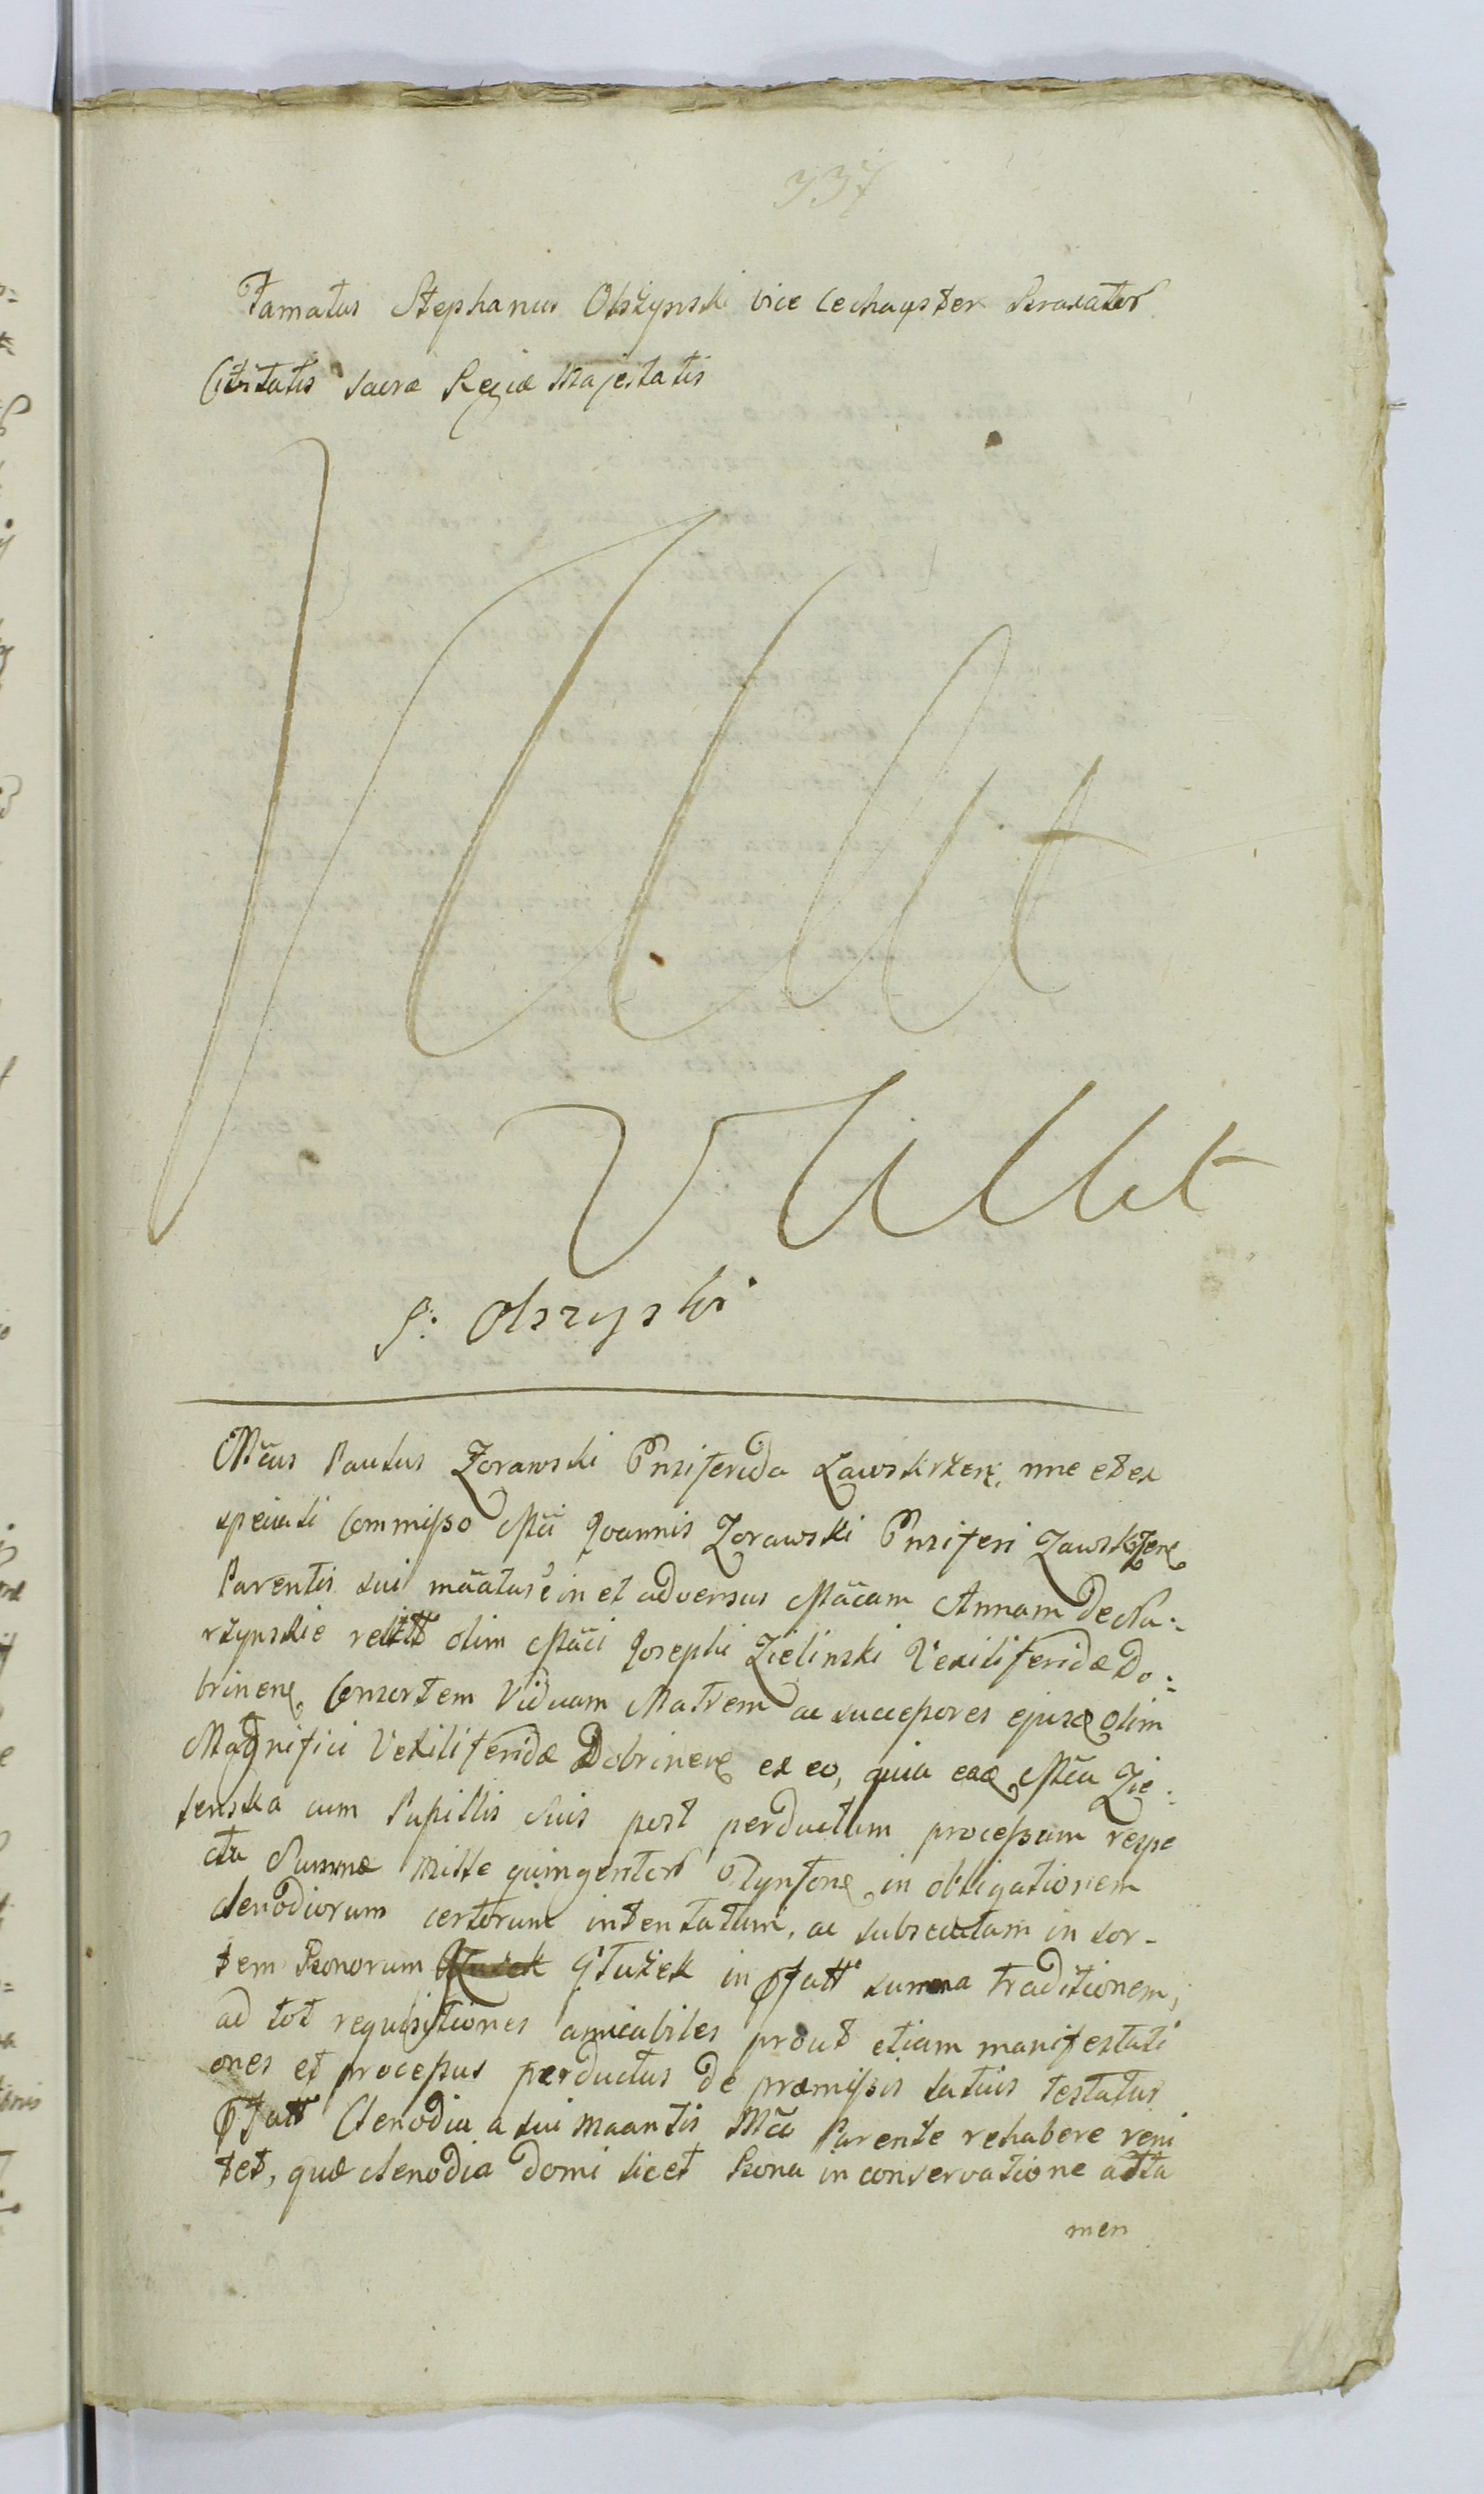 337
Famatus Stephanus Olszynski vice Cechagster
Civitatis Sacræ Regiæ Majestatis
Vult
S: Olszyski
Mcus Paulus Zorawski Ensiferida Zawskrzen, nne et ex
speciali Commisso Mci Joannis Zorawski Ensiferi Zawskrzen
Parentis sui in et adversus Macam Annam de Na:
rzynskie relitt olim Maci Josephi Zielinski Vexiliferidæ Do:
brinen Consortem Viduam Matrem ac successores ejusq olim
Magnifici Vexiliferidæ Dobrinen ex eo, quia eaq Mca Zie:
lenska cum Pupillis Suis post perductum processum respe
ctu Summæ Mille quingentor Tynfone in obligationem
clenodiorum certorum intentatum, ac subsecutam in sor-
tem Bonorum Glużek in Pfatt summa traditionem,
ad tot requisitiones amicabiles prout etiam manifestati
ones et processus perductus de præmissis latius testatur
Pfatt Clenodia a sui Maantis Mco Parente rehabere reni
tet, quæ clenodia domi licet Bona in conservatione atta
men